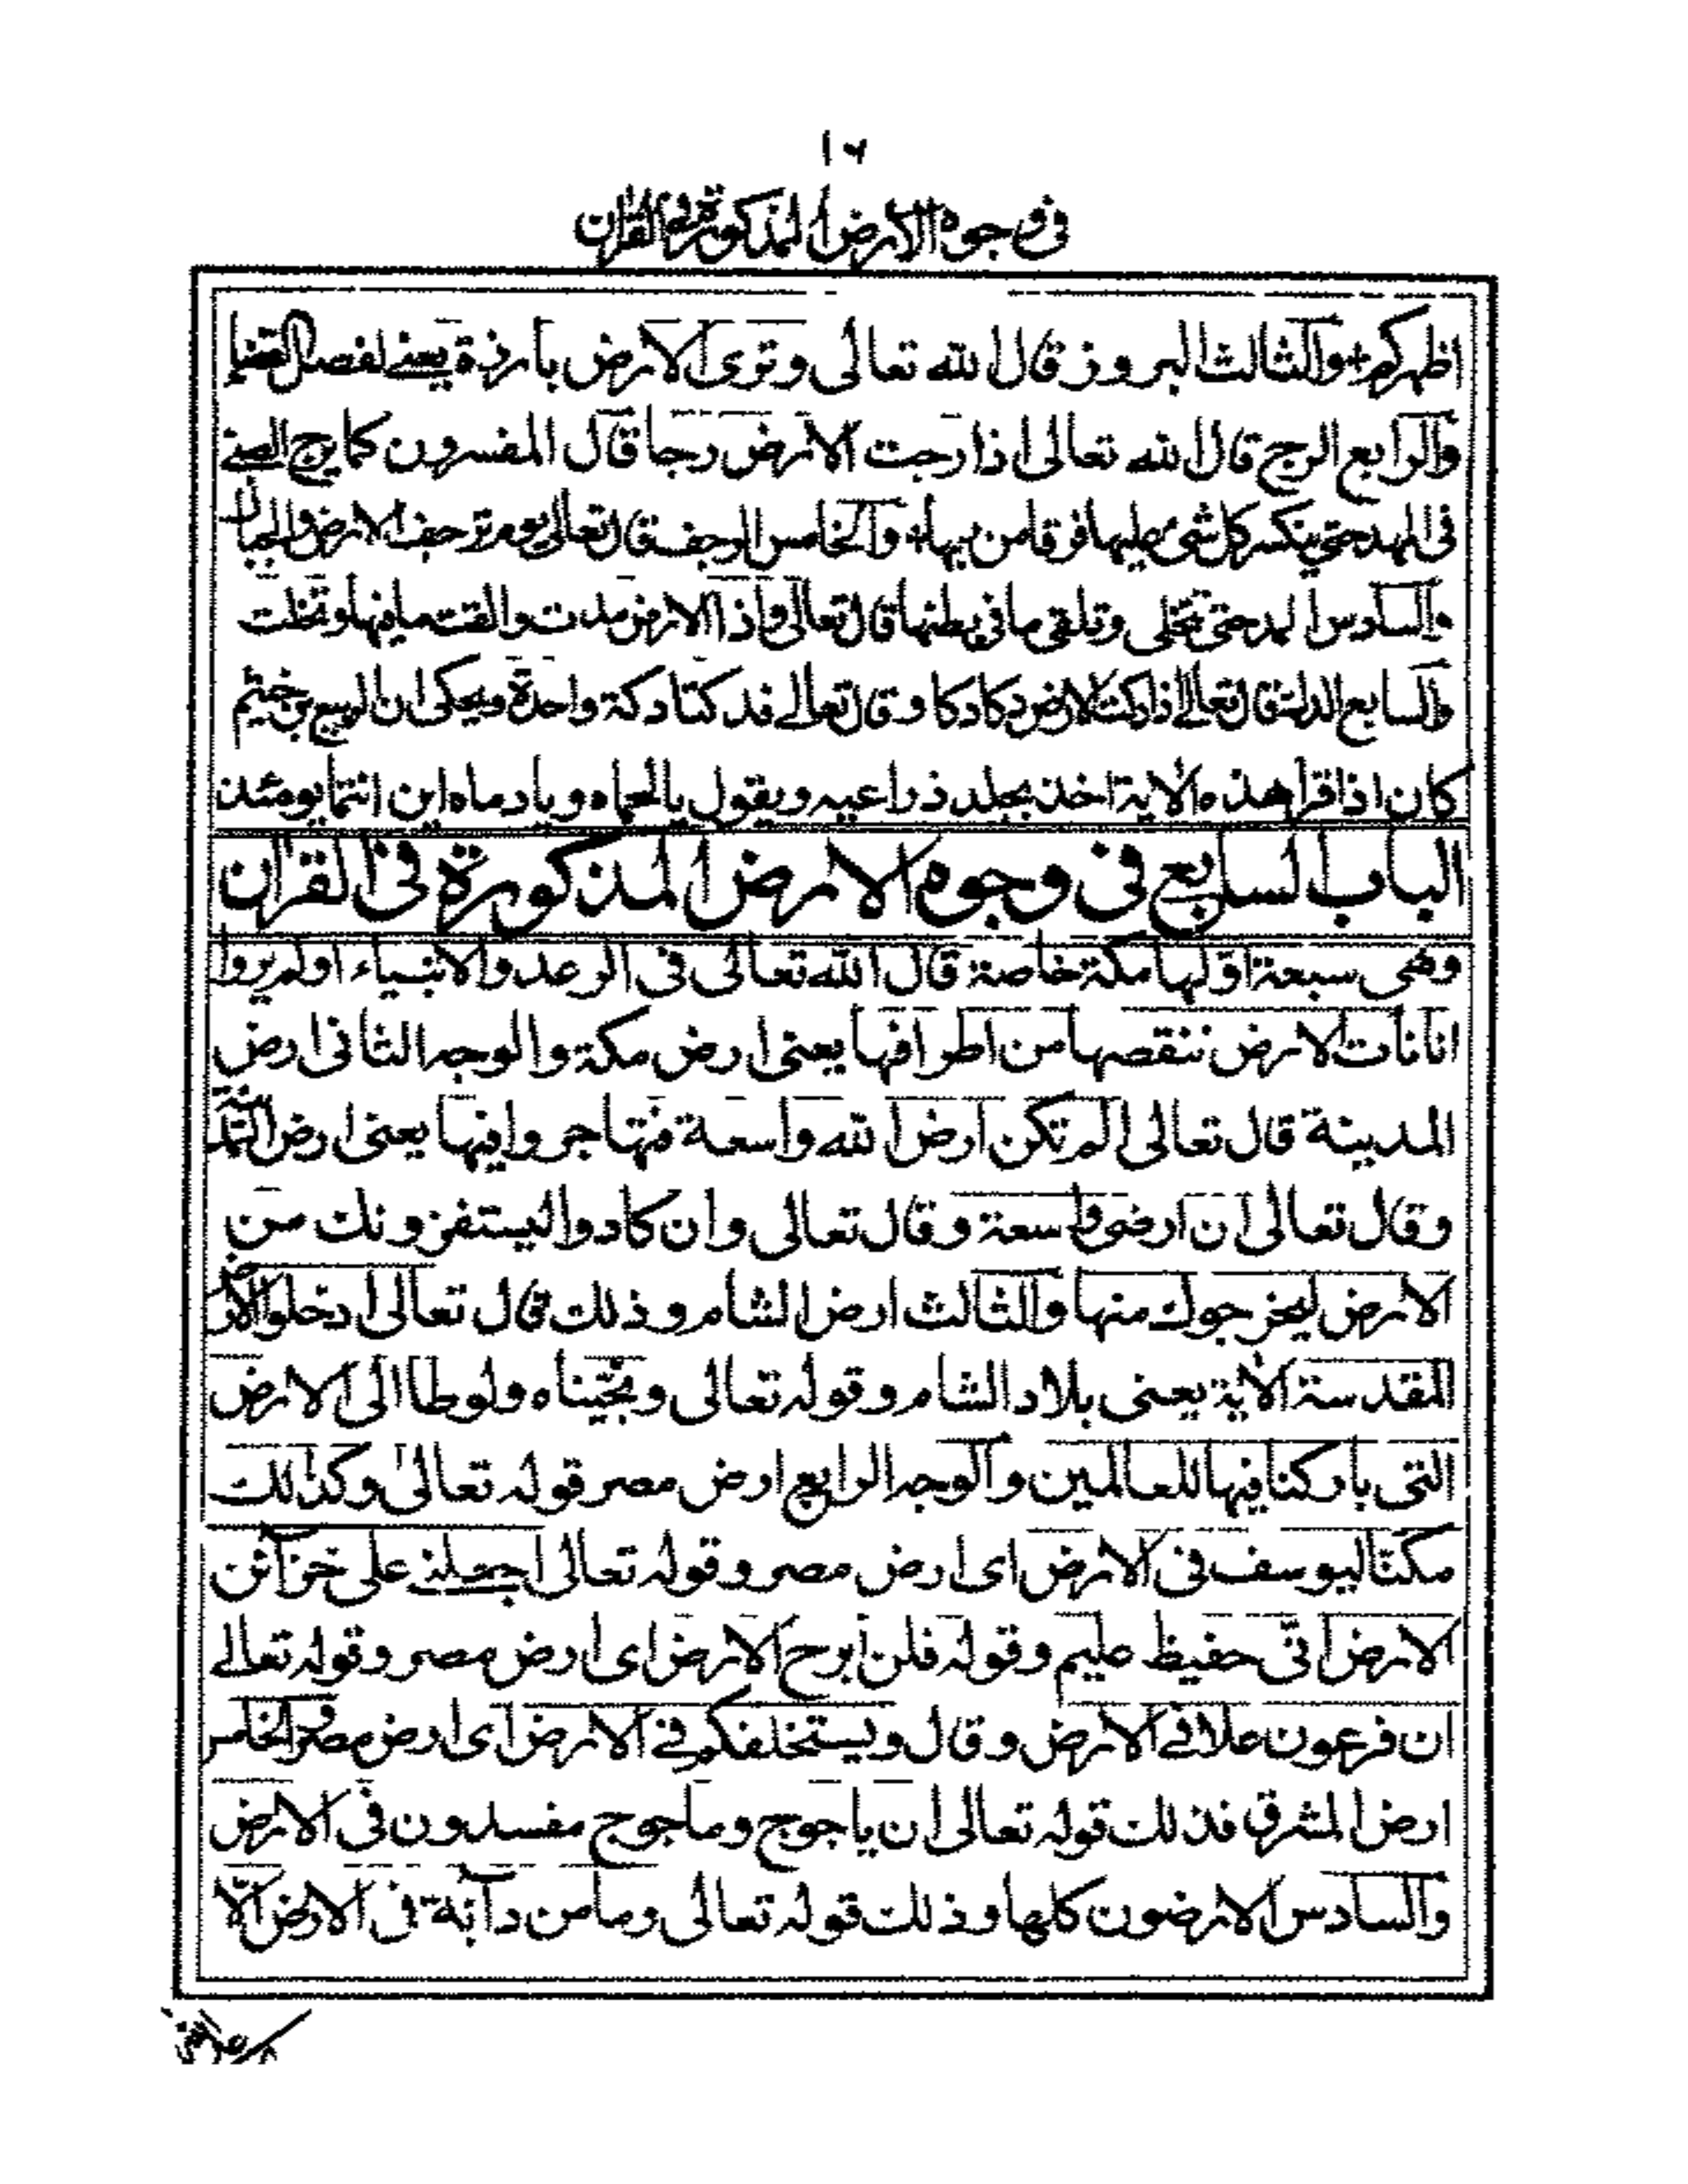 ١٦
في وجوه الارض المذكورة في القرآن
اظهركم والثالث البروز قال الله تعالى وترى الارض بارزة يعنے لفصل القضا
والرابع الرج قال الله تعالى اذا رجت الارض رجا قال المفسرون كما يرج الصبے
فى المهد حتى ينكسر كل شئ عليها فرقا من ربها والخامس الرجف قال تعالى يوم ترجف الارض والجبال
والسادس المد حتى تخلى وتلقى ما فى بطنها قال تعالى واذا الارض مدت والقت ما فيها وتخلت
والسابع الدك قال تعالے اذا دكت الارض دكا دكا وقال تعالے فدكتا دكة واحدة ويحكى ان الربيع بن خثيم
كان اذا قرأ هذه الاية اخذ بجلد ذراعيه ويقول يا لحماه ويا دماه اين انتما يومئذ
الباب السابع فى وجوه الارض المذكورة فى القرآن
وهى سبعة اولها مكة خاصة قال الله تعالى فى الرعد والانبياء اولم يروا
انا نأت الارض ننقصها من اطرافها يعنى ارض مكة والوجه الثانى ارض
المدينة قال تعالى الم تكن ارض الله واسعة فتهاجروا فيها يعنى ارض المدينة
وقال تعالى ان ارضى واسعة وقال تعالى وان كادوا ليستفزونك من
الارض ليخرجوك منها والثالث ارض الشام وذلك قال تعالى ادخلوا الارض
المقدسة الأية يعنى بلاد الشام وقوله تعالى ونجّيناه ولوطا الى الارض
التى باركنا فيها للعالمين والوجه الرابع ارض مصر قوله تعالى وكذلك
مكنّا ليوسف فى الارض اى ارض مصر وقوله تعالى اجعلنے على خزآئن
الارض انّى حفيظ عليم وقوله فلن أبرح الارض اى ارض مصر وقوله تعالے
ان فرعون علا فے الارض وقال ويستخلفكم فے الارض اى ارض مصر والخامس
ارض المشرق فذلك قوله تعالى ان ياجوج وماجوج مفسدون فى الارض
والسادس الارضون كلها وذلك قوله تعالى وما من دآبّة فى الارض الّا